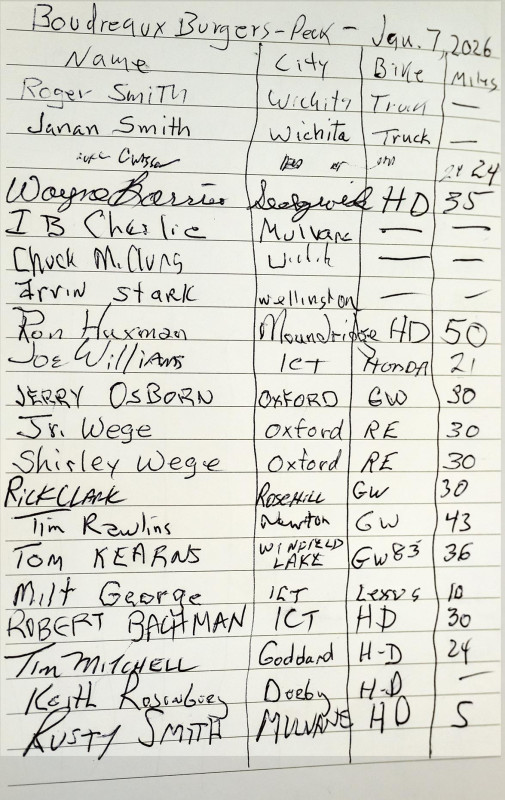 Boudreaux Burgers - Peck - Jan. 7, 2026
Name City Bike Miles
Roger Smith Wichita Truck —
Janan Smith Wichita Truck —
24
Wayne Barrier Sedgwick HD 35
I B Charlie Mulvane — —
Chuck McClung Wichita — —
Ervin Stark Wellington — -
Ron Huxman Moundridge HD 50
Joe Williams ICT HONDA 21
JERRY OSBORN OXFORD GW 30
Jr. Wege Oxford RE 30
Shirley Wege Oxford RE 30
RICK CLARK ROSEHILL GW 30
Tim Rawlins Newton GW 43
TOM KEARNS WINFIELD LAKE GW83 36
Milt George ICT Lexus 10
ROBERT BACHMAN ICT HD 30
Tim MITCHELL Goddard H-D 24
Keith Derby H-D —
RUSTY SMITH MULVANE HD 5